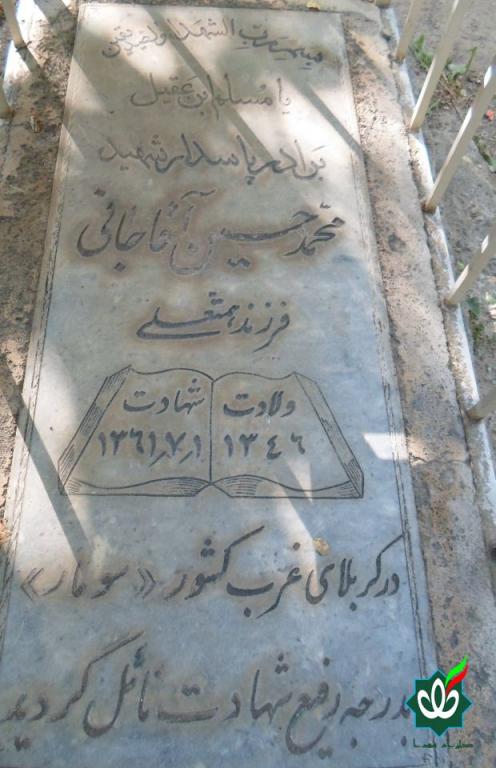 بسم رب الشهداء والصدیقین
یا مسلم ابن عقیل
برادر پاسدار شهید
محمد حسین آقاجانی
فرزند همتعلی
ولادت
۱۳۴۶
شهادت
۱۳۶۱٫۷٫۱
در کربلای غرب کشور «سومار»
بدرجه رفیع شهادت نائل گردید